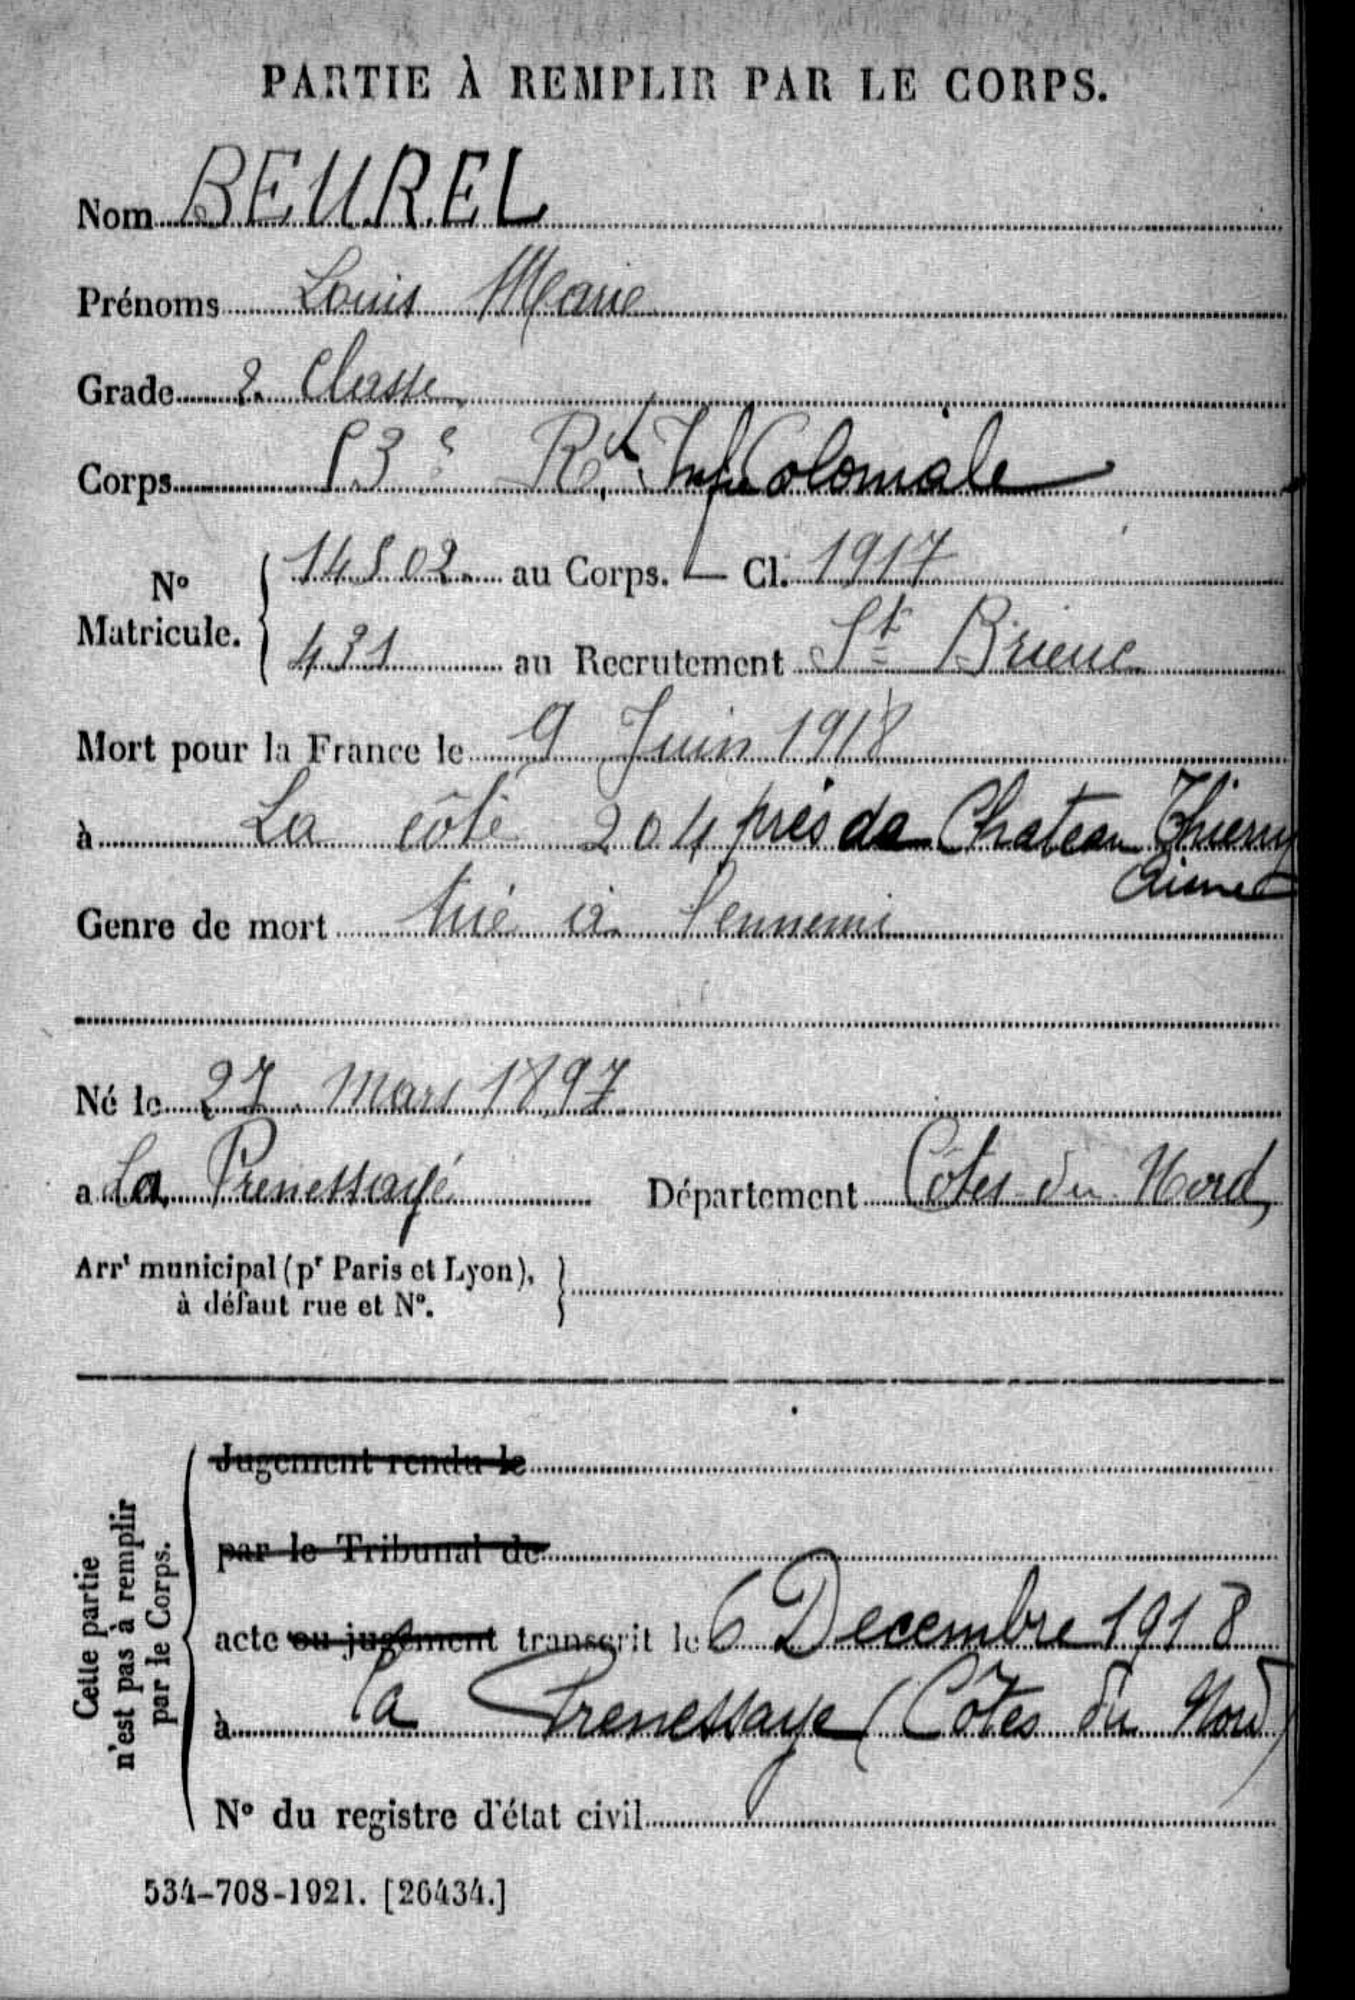 PARTIE À REMPLIR PAR LE CORPS.
Nom BEUREL
Prénoms Louis Marie
Grade 2. Classe
Corps 53e Rt. Infie Coloniale
No Matricule. { 14502 au Corps. — Cl. 1917
431 au Recrutement St Brieuc
Mort pour la France le 9 Juin 1918
à La côte 204 près de Chateau Thierry
Aisne
Genre de mort tué à l'ennemi
Né le 27 Mars 1897
a La Prenessaye Département Côtes du Nord
Arrt municipal (pr Paris et Lyon),
à défaut rue et No. }
Cette partie
n'est pas à remplir
par le Corps.
Jugement rendu le
par le Tribunal de
acte ou jugement transcrit le 6 Decembre 1918
à la Prenessaye (Côtes du Nord)
No du registre d'état civil
534-708-1921. [26434.]